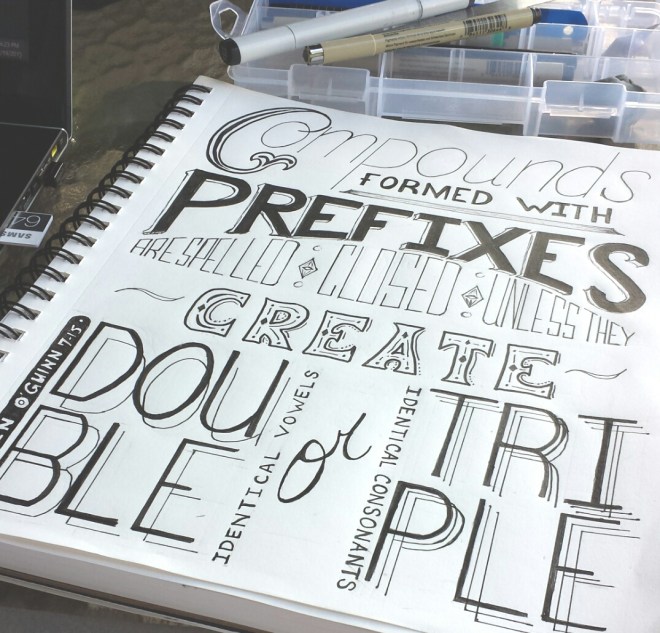 Compounds
FORMED WITH
PREFIXES
ARE SPELLED CLOSED UNLESS THEY
CREATE
DOUBLE
IDENTICAL VOWELS
or
TRIPLE
IDENTICAL CONSONANTS
O'GUINN 7-15
64